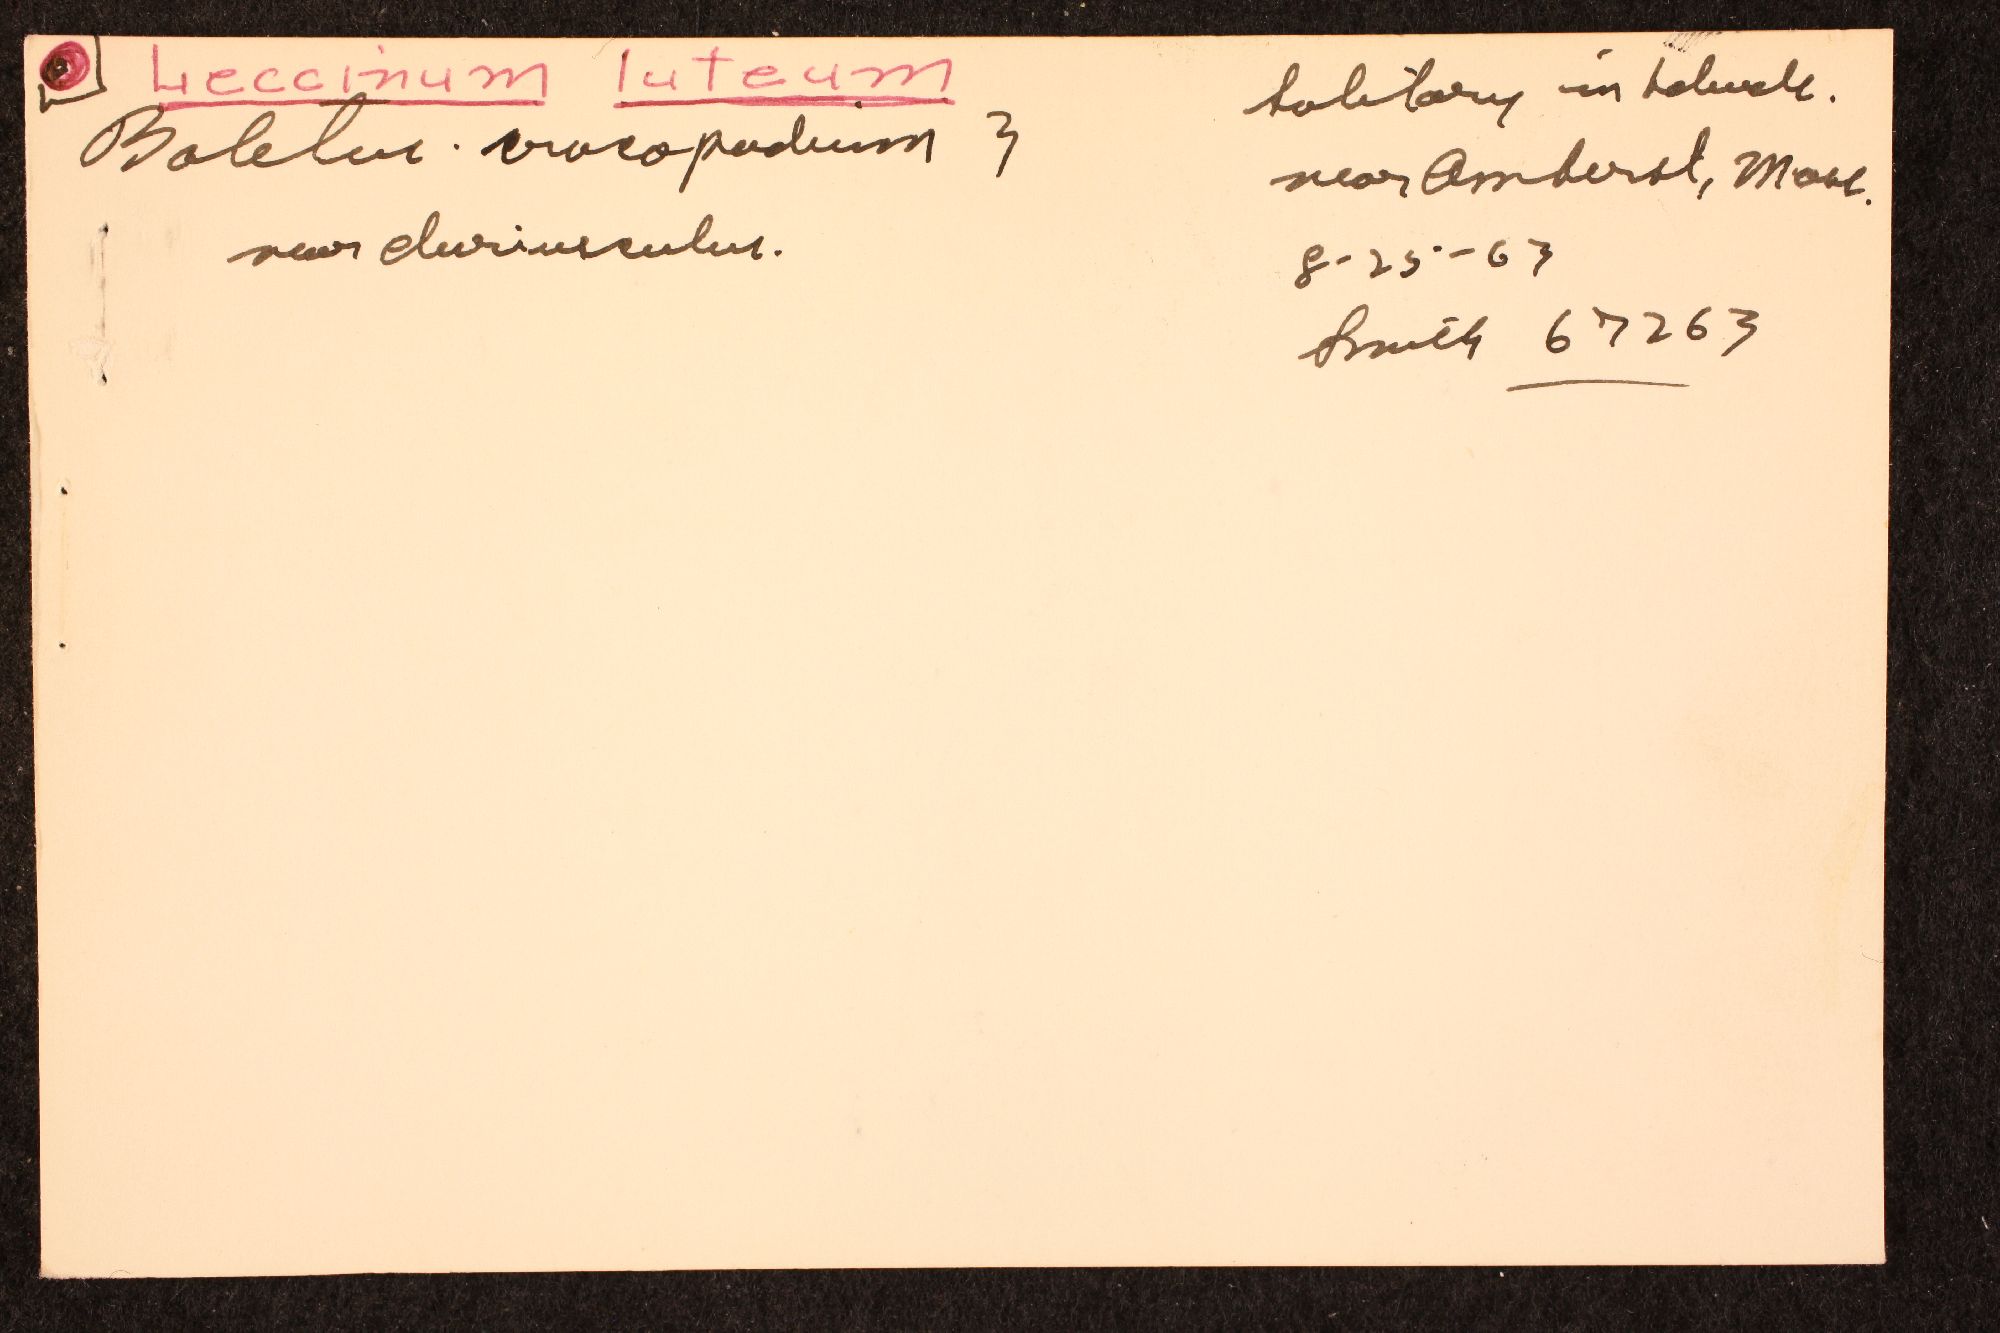 Leccinum luteum
Boletus crocopodium ?
near duriusculus.
Solitary in
near Amherst, Mass.
8-25-63
Smith 67263